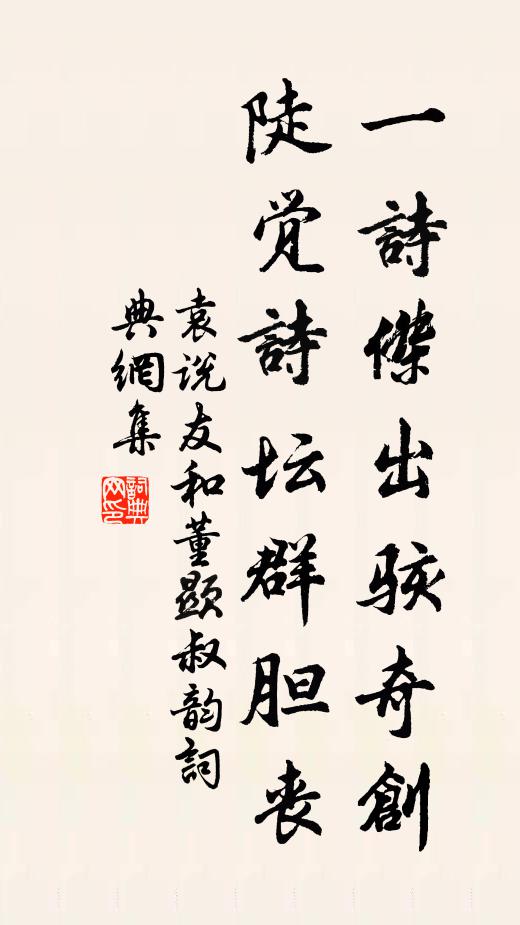 一詩傑出駭奇創
陡觉詩坛群胆丧
袁说友和董顯叔韵詞
典網集
詞典网印